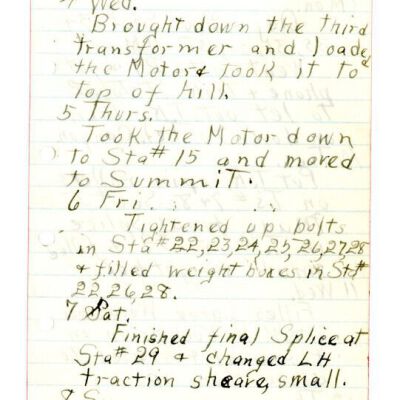 4 Wed.
Brought down the third
transformer and loaded
the Motor & took it to
top of hill.
5 Thurs.
Took the Motor down
to Sta# 15 and moved
to Summit.
6 Fri.
Tightened up bolts
in Sta# 22,23,24,25,26,27,28
& filled weight boxes in Sta#
22,26,28.
7 Sat.
Finished final Splice at
Sta# 29 & changed LH
traction sheave, small.
8 S